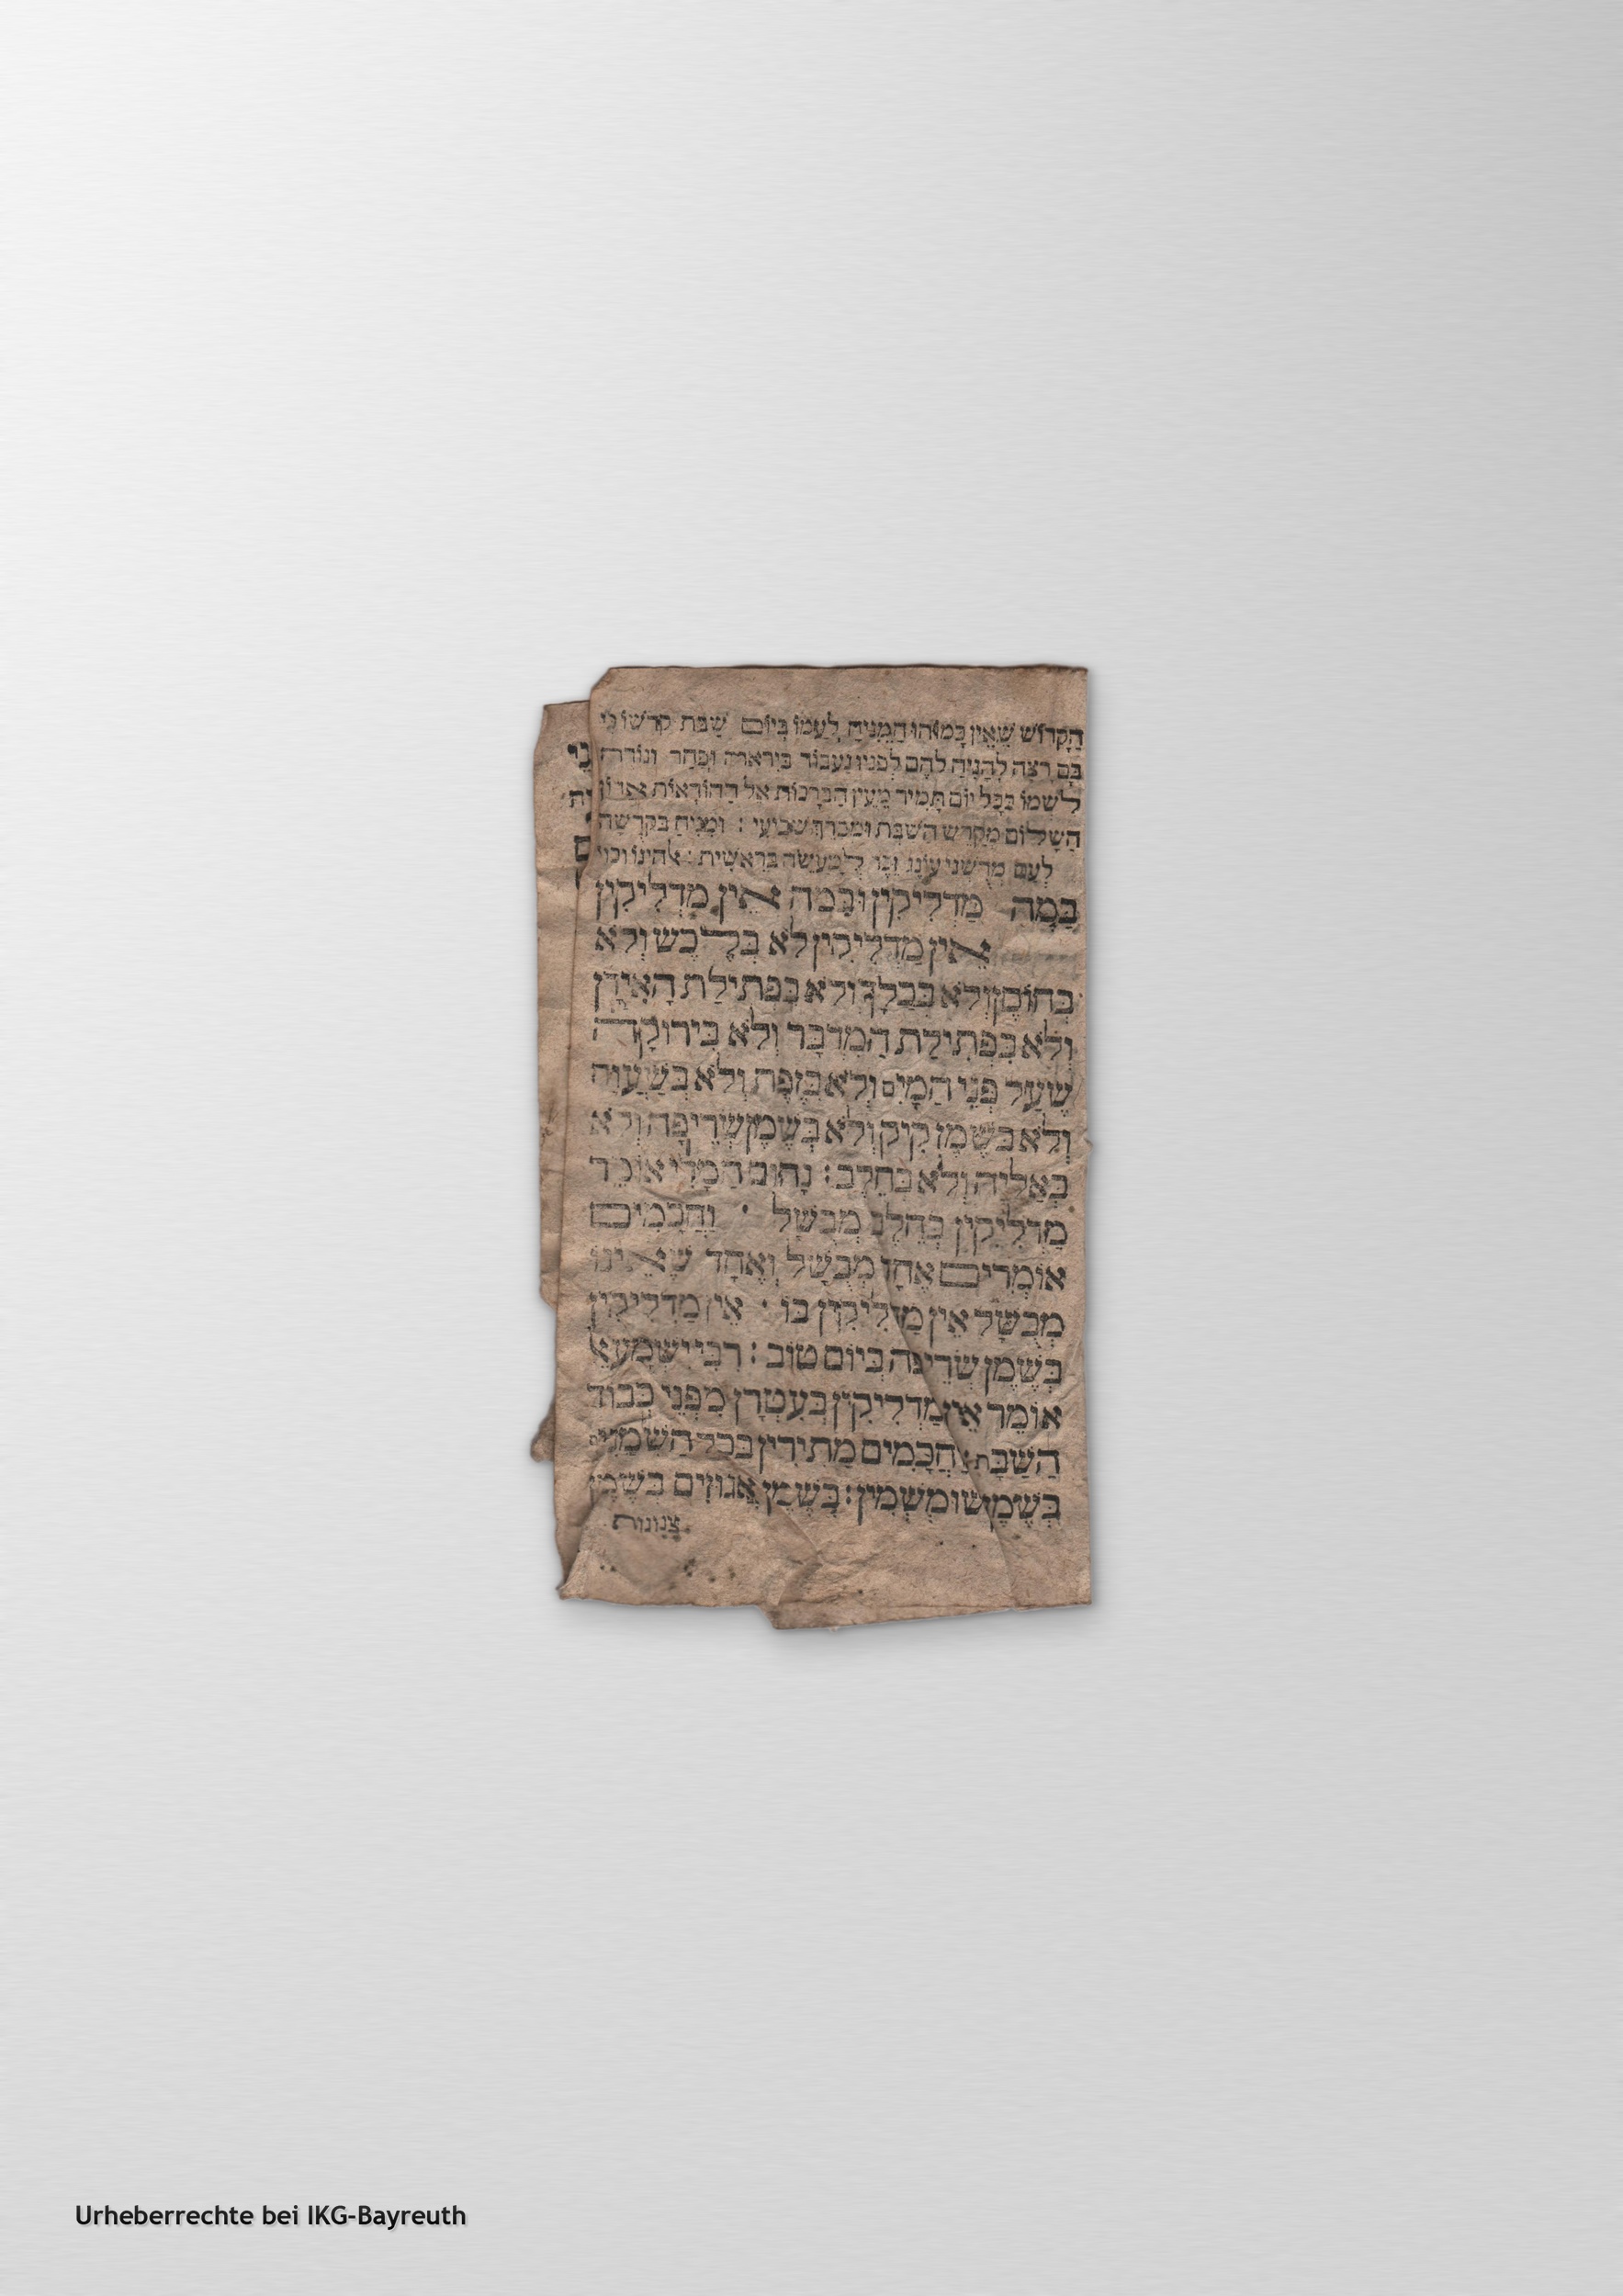 הַקָּדוֹשׁ שֶׁאֵין כָּמוֹהוּ הַמֵּנִיחַ לְעַמּוֹ בְּיוֹם שַׁבַּת קָדְשׁוֹ כִּי
בָם רָצָה לְהָנִיחַ לָהֶם לְפָנָיו נַעֲבוֹד בְּיִרְאָה וָפַחַד וְנוֹדֶה
לִשְׁמוֹ בְּכָל יוֹם תָּמִיד מֵעֵין הַבְּרָכוֹת אֵל הַהוֹדָאוֹת אֲדוֹן
הַשָּׁלוֹם מְקַדֵּשׁ הַשַּׁבָּת וּמְבָרֵךְ שְׁבִיעִי : וּמֵנִיחַ בִּקְדֻשָּׁה
לְעַם מְדֻשְּׁנֵי עוֹנֶג זֵכֶר לְמַעֲשֵׂה בְרֵאשִׁית :
בַּמֶּה מַדְלִיקִין וּבַמֶּה אֵין מַדְלִיקִין
אֵין מַדְלִיקִין לֹא בְלֶכֶשׁ וְלֹא
בְחוֹסֶן וְלֹא בְּכַלָּךְ וְלֹא בִּפְתִילַת הָאִידָן
וְלֹא בִּפְתִילַת הַמִּדְבָּר וְלֹא בִּירוֹקָה
שֶׁעַל פְּנֵי הַמָּיִם וְלֹא בְזֶפֶת וְלֹא בְשַׁעֲוָה
וְלֹא בְּשֶׁמֶן קִיק וְלֹא בְּשֶׁמֶן שְׂרֵיפָה וְלֹא
בְּאַלְיָה וְלֹא בְחֵלֶב : נָחוּם הַמָּדִי אוֹמֵר
מַדְלִיקִין בְּחֵלֶב מְבֻשָּׁל · וַחֲכָמִים
אוֹמְרִים אֶחָד מְבֻשָּׁל וְאֶחָד שֶׁאֵינוֹ
מְבֻשָּׁל אֵין מַדְלִיקִין בּוֹ · אֵין מַדְלִיקִין
בְּשֶׁמֶן שְׂרֵיפָה בְּיוֹם טוֹב : רַבִּי יִשְׁמָעֵאל
אוֹמֵר אֵין מַדְלִיקִין בְּעִטְרָן מִפְּנֵי כְבוֹד
הַשַּׁבָּת : חֲכָמִים מַתִּירִין בְּכָל הַשְּׁמָנִים
בְּשֶׁמֶן שׁוּמְשְׁמִין : בְּשֶׁמֶן אֱגוֹזִים בְּשֶׁמֶן
צְנוֹנוֹת
Urheberrechte bei IKG-Bayreuth